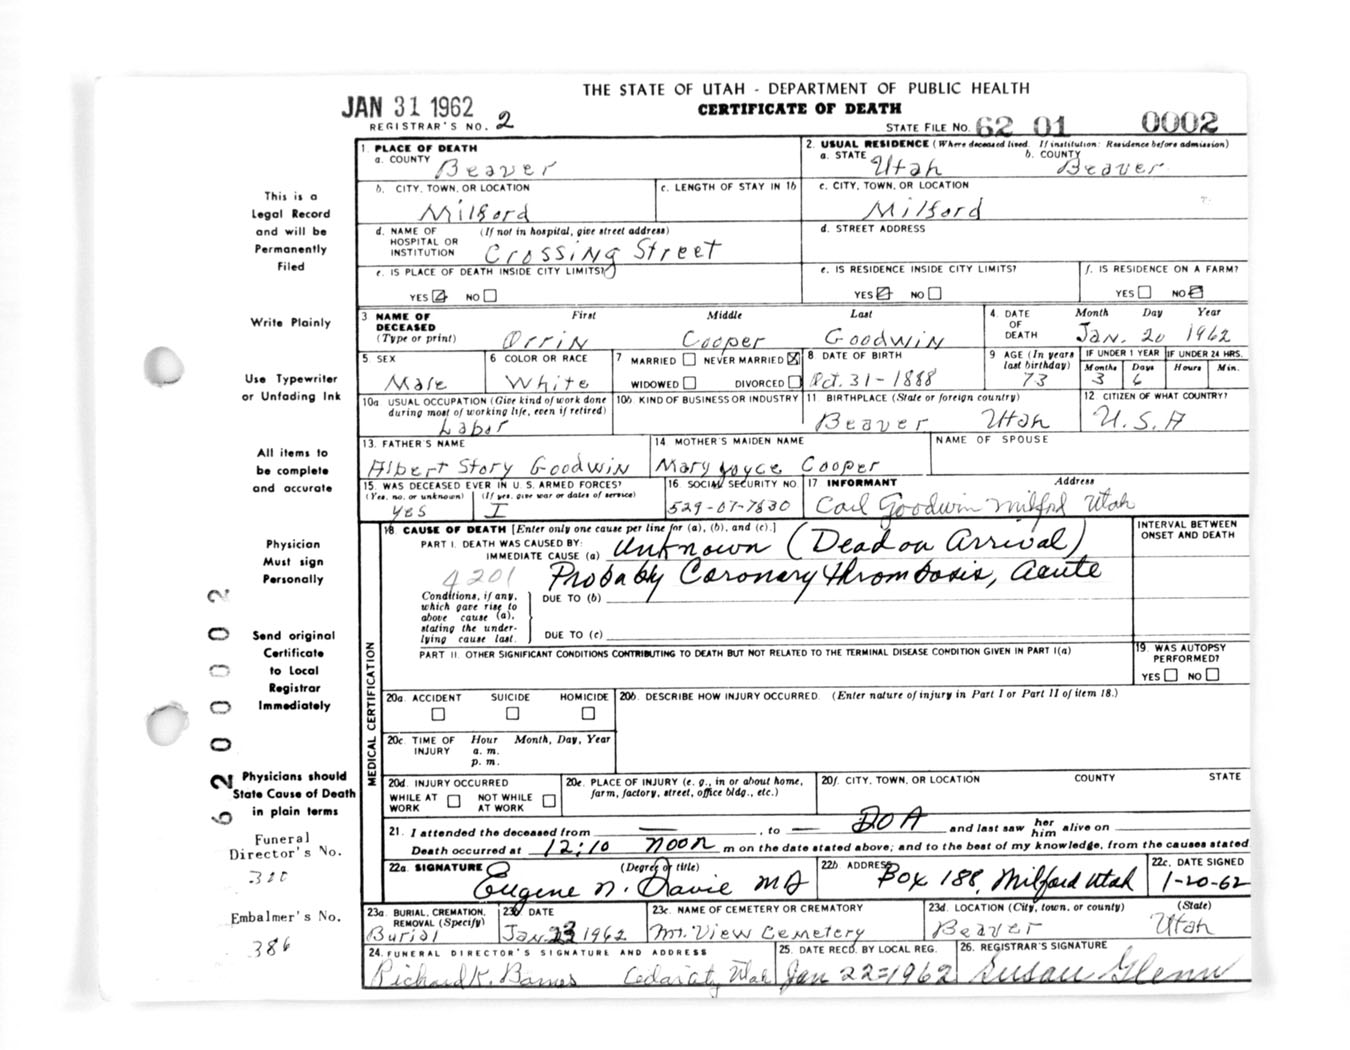 THE STATE OF UTAH - DEPARTMENT OF PUBLIC HEALTH
CERTIFICATE OF DEATH
JAN 31 1962
REGISTRAR'S NO. 2
STATE FILE NO. 62 01 0002
This is a
Legal Record
and will be
Permanently
Filed
Write Plainly
Use Typewriter
or Unfading Ink
All items to
be complete
and accurate
Physician
Must sign
Personally
Send original
Certificate
to Local
Registrar
Immediately
Physicians should
State Cause of Death
in plain terms
Funeral
Director's No.
300
Embalmer's No.
386
62 00002
1. PLACE OF DEATH
a. COUNTY Beaver
2. USUAL RESIDENCE (Where deceased lived. If institution: Residence before admission)
a. STATE Utah b. COUNTY Beaver
b. CITY, TOWN, OR LOCATION Milford
c. LENGTH OF STAY IN 1b
c. CITY, TOWN, OR LOCATION Milford
d. NAME OF HOSPITAL OR INSTITUTION (If not in hospital, give street address) Crossing Street
d. STREET ADDRESS
e. IS PLACE OF DEATH INSIDE CITY LIMITS?
YES NO
e. IS RESIDENCE INSIDE CITY LIMITS?
YES NO
f. IS RESIDENCE ON A FARM?
YES NO
3 NAME OF DECEASED (Type or print) First Middle Last
Orrin Cooper Goodwin
4. DATE OF DEATH Month Day Year
Jan. 20 1962
5 SEX Male
6 COLOR OR RACE White
7 MARRIED NEVER MARRIED X
WIDOWED DIVORCED
8 DATE OF BIRTH Oct. 31-1888
9 AGE (In years last birthday) 73
IF UNDER 1 YEAR Months 3 Days 6
IF UNDER 24 HRS. Hours Min.
10a USUAL OCCUPATION (Give kind of work done during most of working life, even if retired) Labor
10b. KIND OF BUSINESS OR INDUSTRY
11. BIRTHPLACE (State or foreign country) Beaver Utah
12 CITIZEN OF WHAT COUNTRY? U.S.A
13. FATHER'S NAME Albert Story Goodwin
14 MOTHER'S MAIDEN NAME Mary Joyce Cooper
NAME OF SPOUSE
15. WAS DECEASED EVER IN U.S. ARMED FORCES?
(Yes, no, or unknown) yes (If yes, give war or dates of service) I
16 SOCIAL SECURITY NO. 529-07-7630
17 INFORMANT Address
Carl Goodwin Milford Utah
MEDICAL CERTIFICATION
18 CAUSE OF DEATH [Enter only one cause per line for (a), (b), and (c).]
INTERVAL BETWEEN ONSET AND DEATH
PART I. DEATH WAS CAUSED BY:
IMMEDIATE CAUSE (a) Unknown (Dead on Arrival)
4201 Probably Coronary thrombosis, acute
Conditions, if any, which gave rise to above cause (a), stating the underlying cause last.
DUE TO (b)
DUE TO (c)
PART II. OTHER SIGNIFICANT CONDITIONS CONTRIBUTING TO DEATH BUT NOT RELATED TO THE TERMINAL DISEASE CONDITION GIVEN IN PART I(a)
19. WAS AUTOPSY PERFORMED?
YES NO
20a. ACCIDENT SUICIDE HOMICIDE
20b. DESCRIBE HOW INJURY OCCURRED. (Enter nature of injury in Part I or Part II of item 18.)
20c. TIME OF INJURY Hour a. m. p. m. Month, Day, Year
20d. INJURY OCCURRED
WHILE AT WORK NOT WHILE AT WORK
20e. PLACE OF INJURY (e. g., in or about home, farm, factory, street, office bldg., etc.)
20f. CITY, TOWN, OR LOCATION COUNTY STATE
21. I attended the deceased from — , to — DOA and last saw her him alive on
Death occurred at 12:10 noon m on the date stated above; and to the best of my knowledge, from the causes stated
22a. SIGNATURE (Degree or title) Eugene N. Davie MD
22b ADDRESS Box 188, Milford Utah
22c. DATE SIGNED 1-20-62
23a. BURIAL, CREMATION, REMOVAL (Specify) Burial
23b DATE Jan 23 1962
23c. NAME OF CEMETERY OR CREMATORY Mt. View Cemetery
23d. LOCATION (City, town, or county) (State) Beaver Utah
24. FUNERAL DIRECTOR'S SIGNATURE AND ADDRESS Richard K. Barnes Cedar City, Utah
25. DATE RECD. BY LOCAL REG. Jan 22=1962
26. REGISTRAR'S SIGNATURE Susan Glenn